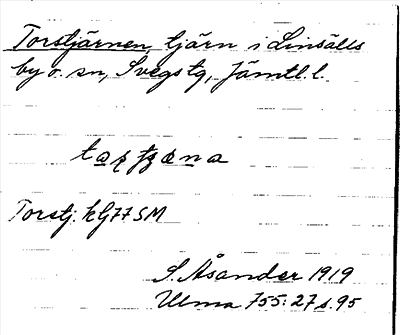 Torstjärnen, tjärn i Linsälls
by o. sn, Svegs tg, Jämtl. l.
Torstj. kG77SM
S. Åsander 1919
Ulma 755: 27 s. 95